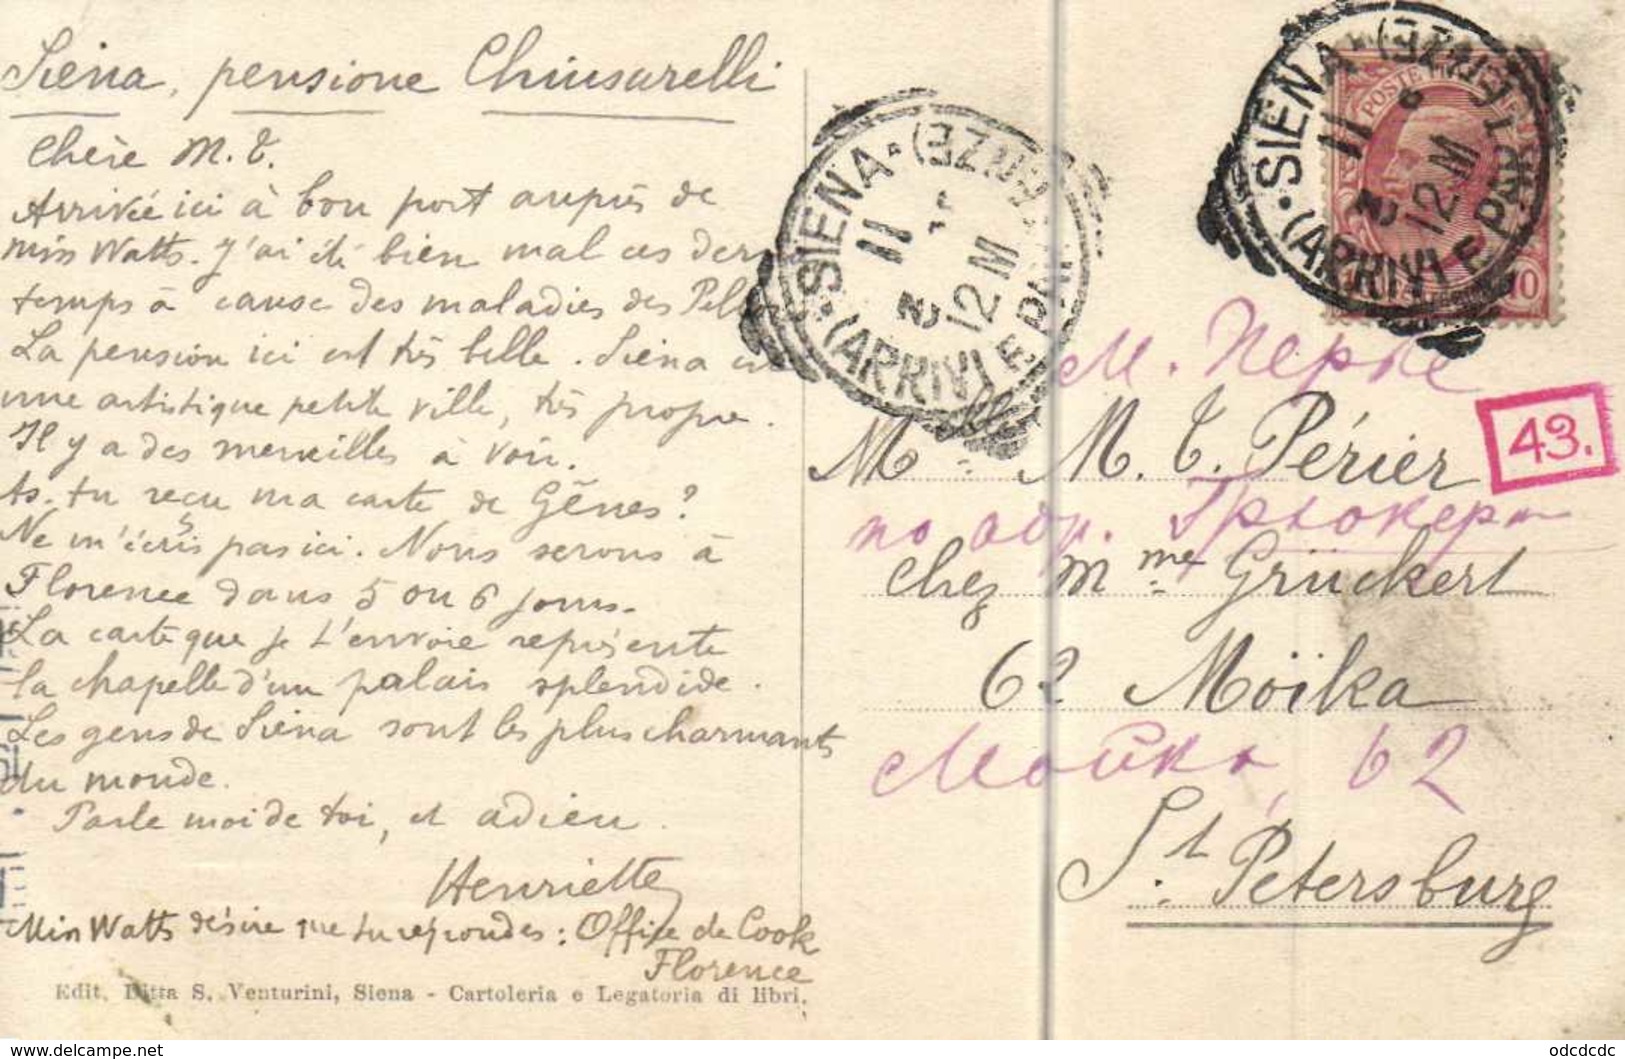 Siena, pensione Chiusarelli
Chère M. T.
Arrivée ici à bon port auprès de
Miss Watts. J'ai été bien mal ces der
temps à cause des maladies des Pel
La pension ici est très belle. Siena est
une artistique petite ville, très propre.
Il y a des merveilles à voir.
As-tu reçu ma carte de Gênes?
Ne m'écris pas ici. Nous serons à
Florence dans 5 ou 6 jours.
La carte que je t'envoie représente
la chapelle d'un palais splendide.
Les gens de Siena sont les plus charmants
du monde.
Parle moi de toi, et adieu.
Henriette
Miss Watts désire que tu répondes: Office de Cook
Florence
Edit. Ditta S. Venturini, Siena - Cartoleria e Legatoria di libri.
SIENA (FERROVIA
11
3
12 M
(ARRIVI E PARTENZE)
SIENA
11
3
12 M
(ARRIVI E PARTENZE)
POSTE
10
М. Перье
43.
M M. T. Périer
по адр. Грюкерт
chez Mme Grückert
62 Moïka
Мойка, 62
St. Petersburg
delcampe.net
odcdcdc